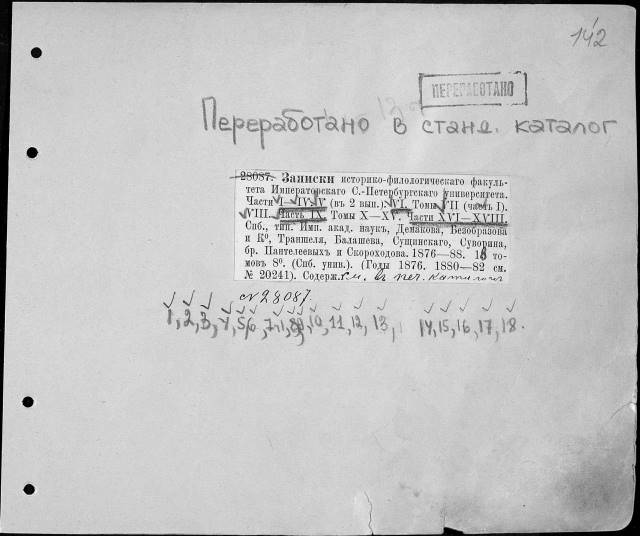 142
ПЕРЕРАБОТАНО
Переработано в станд. каталог
28087. Записки историко-филологическаго факуль-
тета Императорскаго С.-Петербургскаго университета.
Части I—IV. V (въ 2 вып.). VI. Томъ VII (часть I).
VIII. Часть IX. Томы X—XV. Части XVI—XVIII.
Спб., тип. Имп. акад. наукъ, Демакова, Безобразова
и К⁰, Траншеля, Балашева, Сущинскаго, Суворина,
бр. Пантелеевыхъ и Скороходова. 1876—88. 18 то-
мовъ 8⁰. (Спб. унив.). (Годы 1876. 1880—82 см.
№ 20241). Содерж. см. въ печ. каталогѣ
№ 28087.
1, 2, 3, 4, 5, 6, 7, 8, 9, 10, 11, 12, 13, 14, 15, 16, 17, 18.